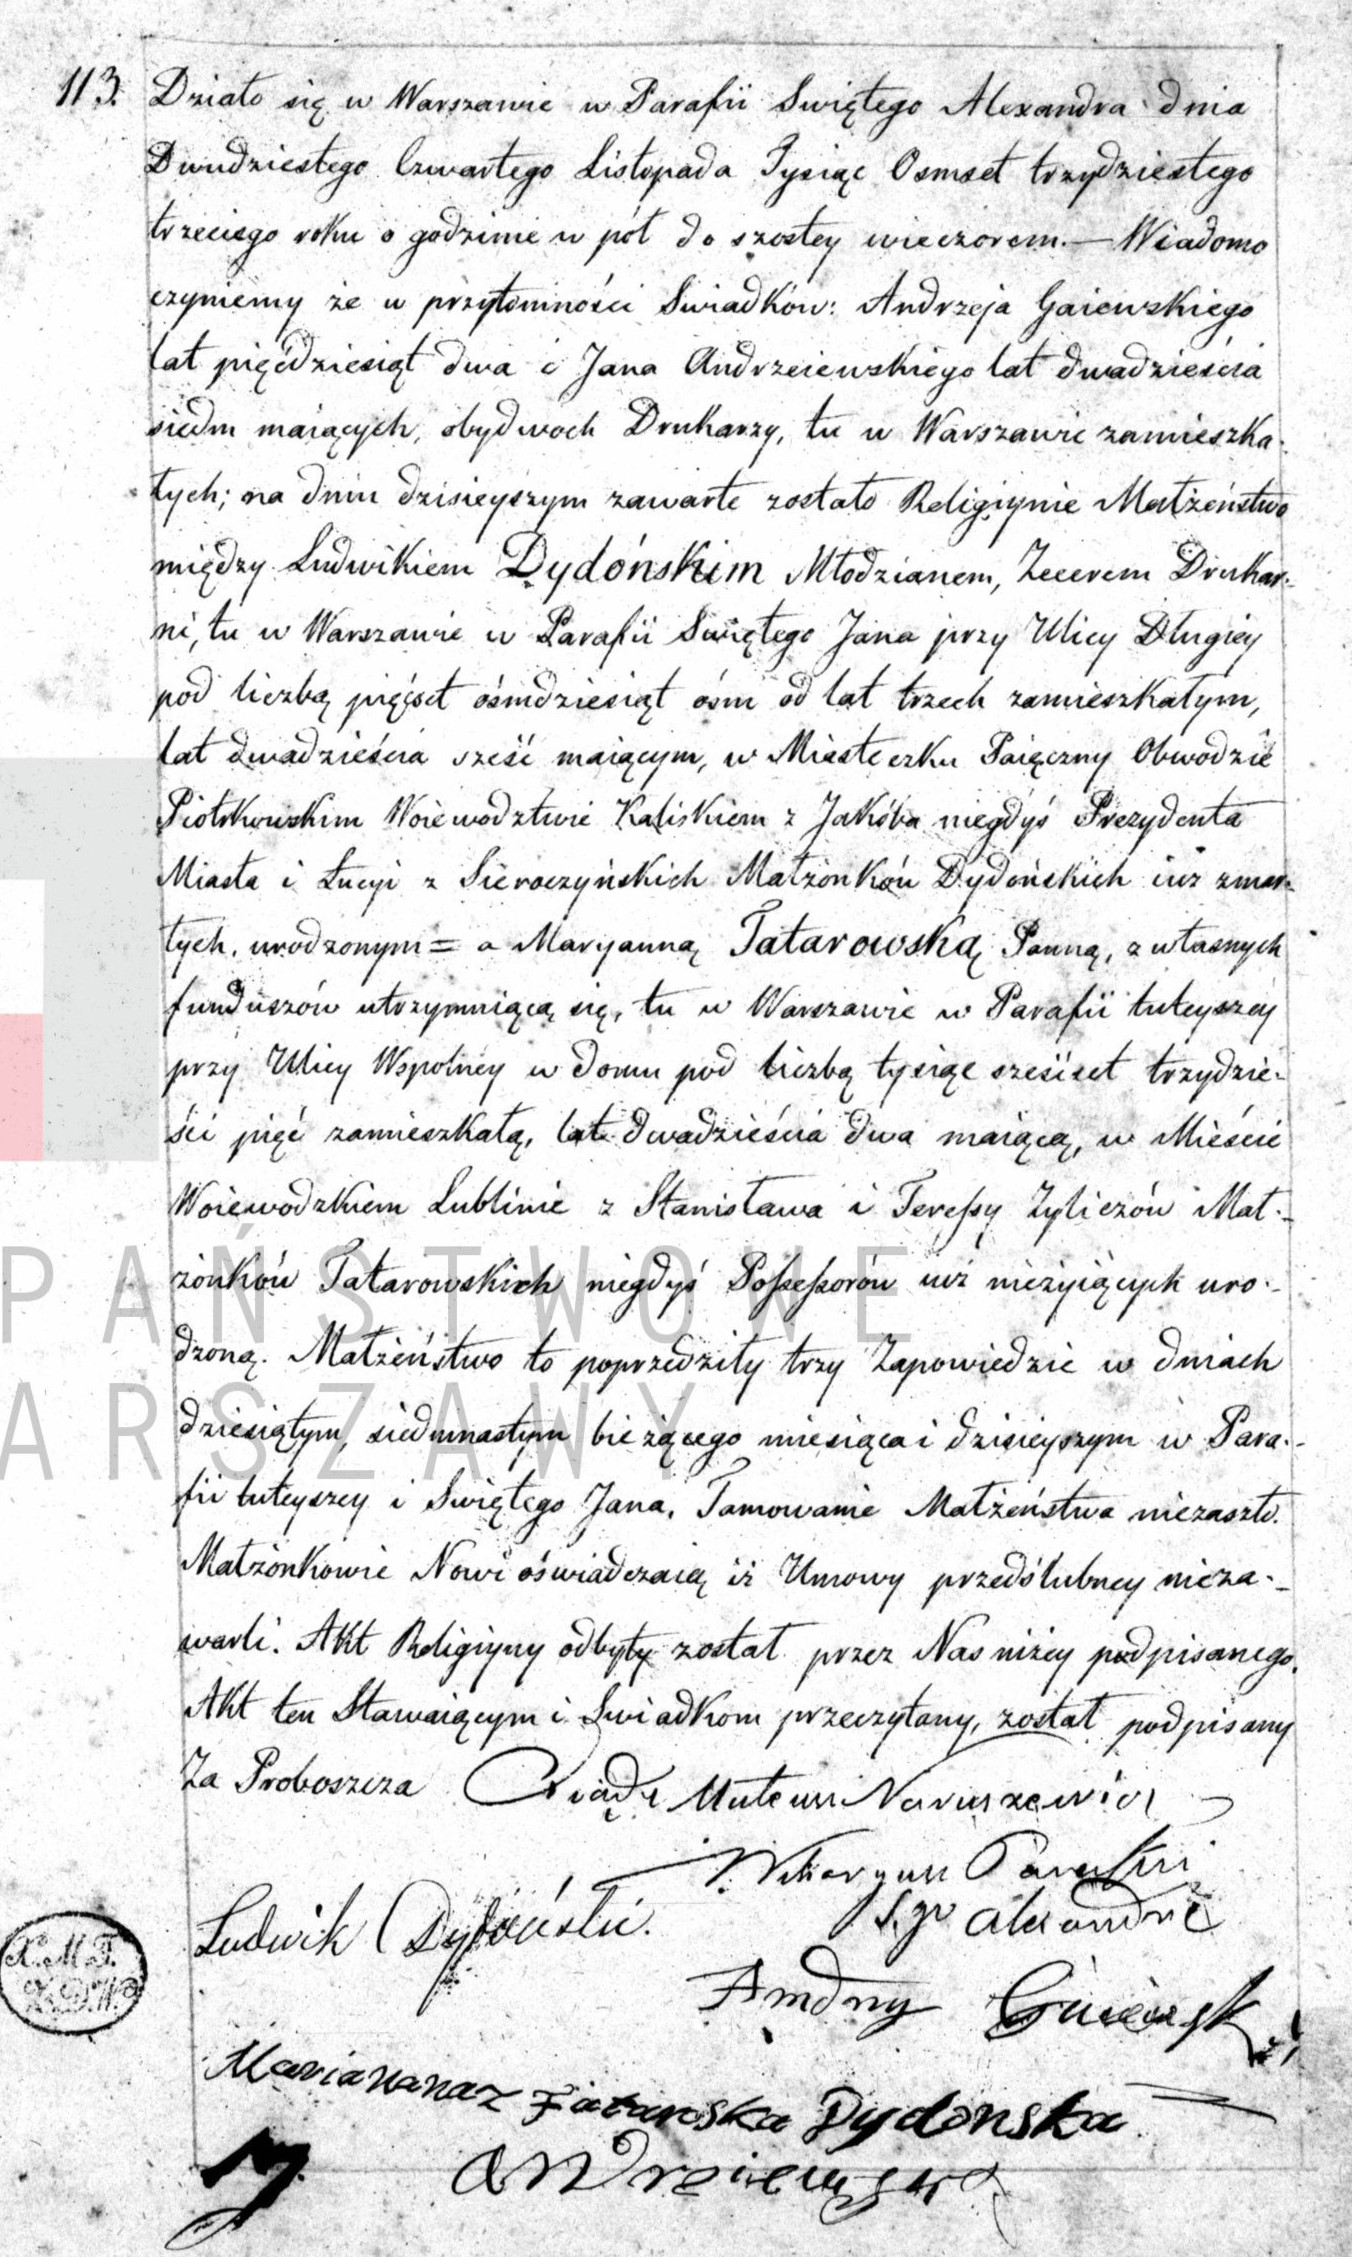 113. Działo się w Warszawie w Parafii Swiętego Alexandra dnia
Dwudziestego Czwartego Listopada Tysiąc Osmset trzydziestego
trzeciego roku o godzinie w pół do szostey wieczorem. — Wiadomo
czyniemy że w przytomności Swiadków: Andrzeja Gaiewskiego
lat pięćdziesiąt dwa i Jana Andrzeiewskiego lat dwadzieścia
siedm maiących, obydwoch Drukarzy, tu w Warszawie zamieszka-
łych; na dniu dzisieyszym zawarte zostało Religiynie Małżeństwo
między Ludwikiem Dydońskim Młodzianem, Zecerem Drukar-
ni, tu w Warszawie w Parafii Swiętego Jana przy Ulicy Długiey
pod liczbą pięćset ośmdziesiąt ośm od lat trzech zamieszkałym,
lat dwadzieścia sześć maiącym, w Miasteczku Paięczny Obwodzie
Piotrkowskim Woiewodztwie Kaliskiem z Jakóba niegdyś Prezydenta
Miasta i Łucyi z Sieroczyńskich Małżonków Dydońskich iuz zmar-
łych, urodzonym = a Maryanną Tatarowską Panną, z własnych
funduszów utrzymuiącą się, tu w Warszawie w Parafii tuteyszey
przy Ulicy Wspolney w domu pod liczbą tysiąc sześćset trzydzie-
ści pięć zamieszkałą, lat dwadzieścia dwa maiącą, w Mieście
Woiewodzkiem Lublinie z Stanisława i Teressy Zyliczów Mał-
żonków Tatarowskich niegdyś Possessorów iuż nieżyiących uro-
dzoną. Małżeństwo to poprzedziły trzy Zapowiedzie w dniach
dziesiątym, siedmnastym bieżącego miesiąca i dzisieyszym w Para-
fii tuteyszey i Swiętego Jana. Tamowanie Małżeństwa niezaszło.
Małżonkowie Nowi oświadczaią iż Umowy przedślubney nieza-
warli. Akt Religiyny odbyty został przez Nas niżey podpisanego.
Akt ten Stawaiącym i Swiadkom przeczytany, został podpisany
Za Proboszcza Xiądz Mateusz Naruszewicz
Wikaryusz Parafii
S. go Alexandra
Ludwik Dydoński.
Andrzy Gaiewski
Marianana z Tatarowska Dydonska
Andrzeiewski
X. M. F.
PAŃSTWOWE
ARSZAWY